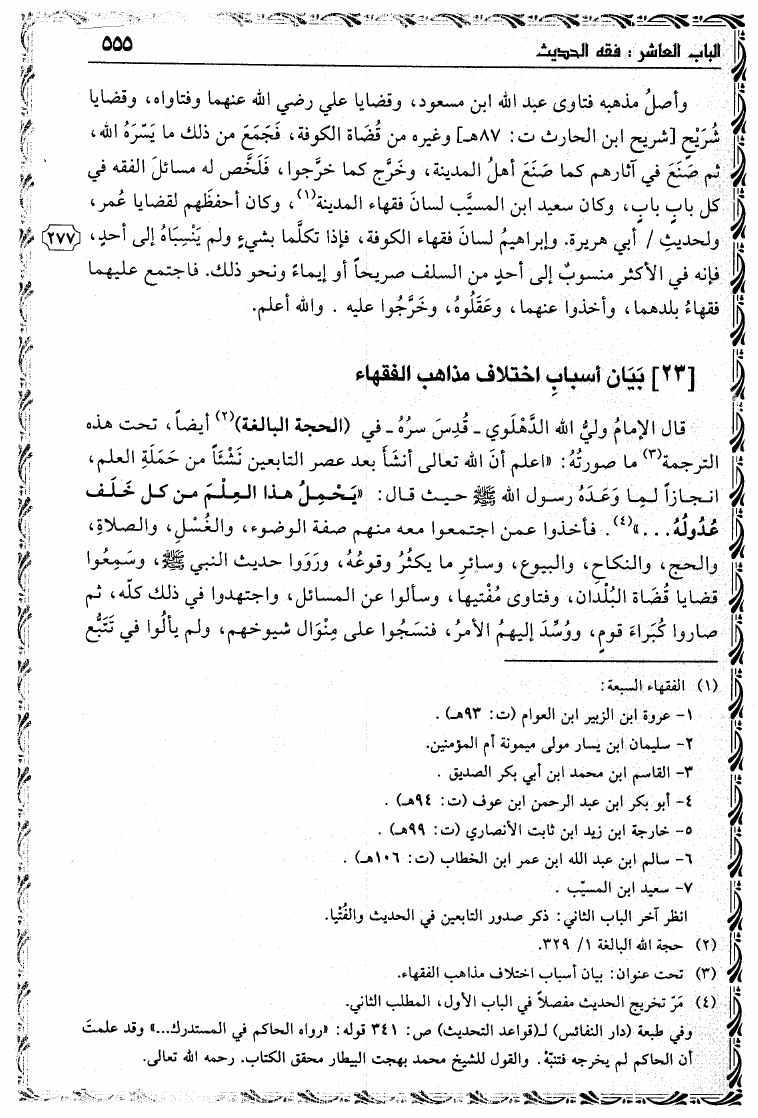 الباب العاشر : فقه الحديث
٥٥٥
وأصلُ مذهبه فتاوى عبد الله ابن مسعود، وقضايا علي رضي الله عنهما وفتاواه، وقضايا
شُرَيْحٍ [شريح ابن الحارث ت: ٨٧هـ] وغيره من قُضَاة الكوفة، فَجَمَعَ من ذلك ما يَسّرَهُ الله،
ثم صَنَعَ في آثارهم كما صَنَعَ أهلُ المدينة، وخَرَّج كما خرَّجوا، فَلَخَّص له مسائلَ الفقه في
كل بابٍ بابٍ، وكان سعيد ابن المسيَّب لسانَ فقهاء المدينة(١)، وكان أحفظَهم لقضايا عُمر،
ولحديثِ / أبي هريرة. وإبراهيمُ لسانَ فقهاء الكوفة، فإذا تكلَّما بشيءٍ ولم يَنْسِبَاهُ إلى أحدٍ،
[٢٧٧]
فإنه في الأكثر منسوبٌ إلى أحدٍ من السلف صريحاً أو إيماءً ونحو ذلك. فاجتمع عليهما
فقهاءُ بلدهما، وأخذوا عنهما، وعَقَلُوهُ، وخَرَّجُوا عليه . والله أعلم.
[٢٣] بَيَان أسبابِ اختلاف مذاهب الفقهاء
قال الإمامُ وليُّ الله الدَّهْلَوي ـ قُدِسَ سرُهُ ـ في (الحجة البالغة)(٢) أيضاً، تحت هذه
الترجمة(٣) ما صورتُهُ: «اعلم أنَ الله تعالى أنشَأ بعد عصر التابعين نَشْئَاً من حَمَلَةِ العلم،
انجازاً لـمِا وَعَدَهُ رسول الله ﷺ حيث قال: «يَحْمِلُ هذا العِلْمَ من كل خَلَف
عُدُولُهُ...»(٤). فأخذوا عمن اجتمعوا معه منهم صفة الوضوء، والغُسْلِ، والصلاةِ،
والحج، والنكاحِ، والبيوع، وسائرِ ما يكثُرُ وقوعُهُ، ورَوَوا حديث النبي ﷺ، وسَمِعُوا
قضايا قُضَاة البُلْدان، وفتاوى مُفْتيها، وسألوا عن المسائل، واجتهدوا في ذلك كلّه، ثم
صاروا كُبَراءَ قومٍ، ووُسِّدَ إليهمُ الأمرُ، فنسَجُوا على مِنْوَال شيوخهم، ولم يألُوا في تَتَبُّع
(١) الفقهاء السبعة:
١- عروة ابن الزبير ابن العوام (ت: ٩٣هـ) .
٢- سليمان ابن يسار مولى ميمونة أم المؤمنين.
٣- القاسم ابن محمد ابن أبي بكر الصديق .
٤- أبو بكر ابن عبد الرحمن ابن عوف (ت: ٩٤هـ) .
٥- خارجة ابن زيد ابن ثابت الأنصاري (ت: ٩٩هـ) .
٦- سالم ابن عبد الله ابن عمر ابن الخطاب (ت: ١٠٦هـ) .
٧- سعيد ابن المسيّب .
انظر آخر الباب الثاني: ذكر صدور التابعين في الحديث والفُتْيا.
(٢) حجة الله البالغة ١/ ٣٢٩.
(٣) تحت عنوان: بيان أسباب اختلاف مذاهب الفقهاء.
(٤) مَرّ تخريج الحديث مفصلاً في الباب الأول، المطلب الثاني.
وفي طبعة (دار النفائس) لـ(قواعد التحديث) ص: ٣٤١ قوله: «رواه الحاكم في المستدرك...» وقد علمتَ
أن الحاكم لم يخرجه فتنبّهْ. والقول للشيخ محمد بهجت البيطار محقق الكتاب. رحمه الله تعالى.